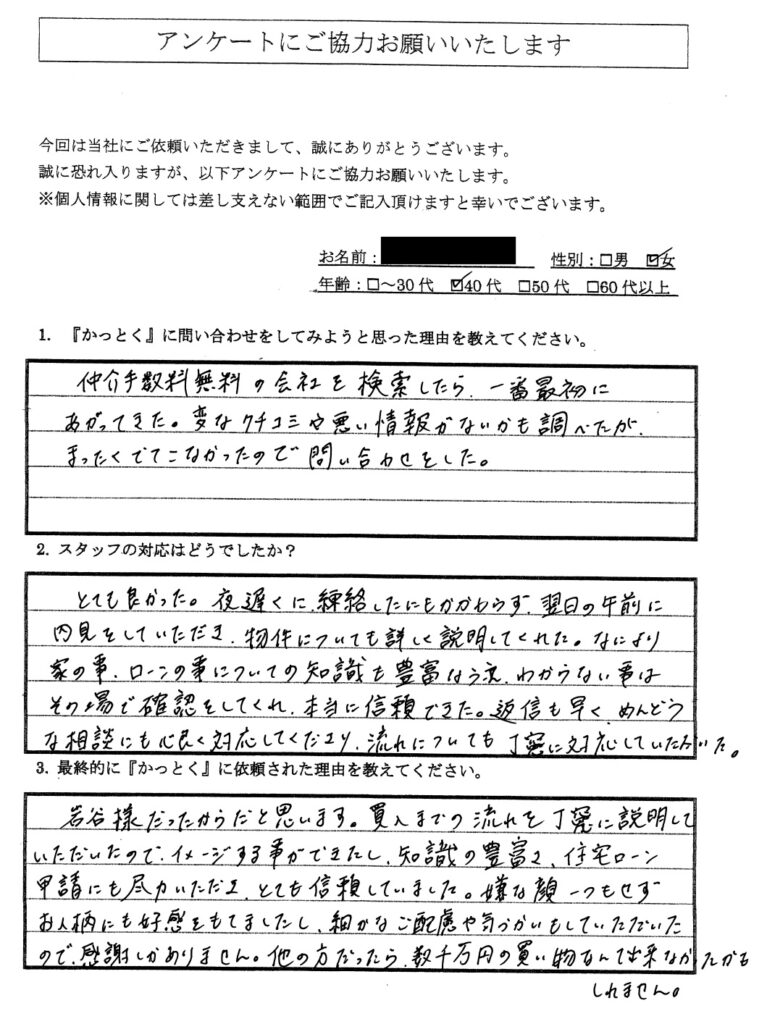 アンケートにご協力お願いいたします
今回は当社にご依頼いただきまして、誠にありがとうございます。
誠に恐れ入りますが、以下アンケートにご協力お願いいたします。
※個人情報に関しては差し支えない範囲でご記入頂けますと幸いでございます。
お名前： 性別：□男 ☑女
年齢：□～30代 ☑40代 □50代 □60代以上
1. 『かっとく』に問い合わせをしてみようと思った理由を教えてください。
仲介手数料無料の会社を検索したら、一番最初に
あがってきた。変なクチコミや悪い情報がないかも調べたが、
まったくでてこなかったので問い合わせをした。
2. スタッフの対応はどうでしたか？
とても良かった。夜遅くに連絡したにもかかわらず、翌日の午前に
内見をしていただき、物件についても詳しく説明してくれた。なにより
家の事、ローンの事についての知識も豊富なうえ、わからない事は
その場で確認をしてくれ、本当に信頼できた。返信も早く、めんどう
な相談にも心良く対応してくださり、流れについても丁寧に対応していただいた。
3. 最終的に『かっとく』に依頼された理由を教えてください。
岩谷様だったからだと思います。買入までの流れを丁寧に説明して
いただいたので、イメージする事ができたし、知識の豊富さ、住宅ローン
申請にも尽力いただき、とても信頼していました。嫌な顔一つもせず
お人柄にも好感をもてましたし、細かなご配慮や気づかいもしていただいた
ので、感謝しかありません。他の方だったら、数千万円の買い物なんて出来なかったかも
しれません。